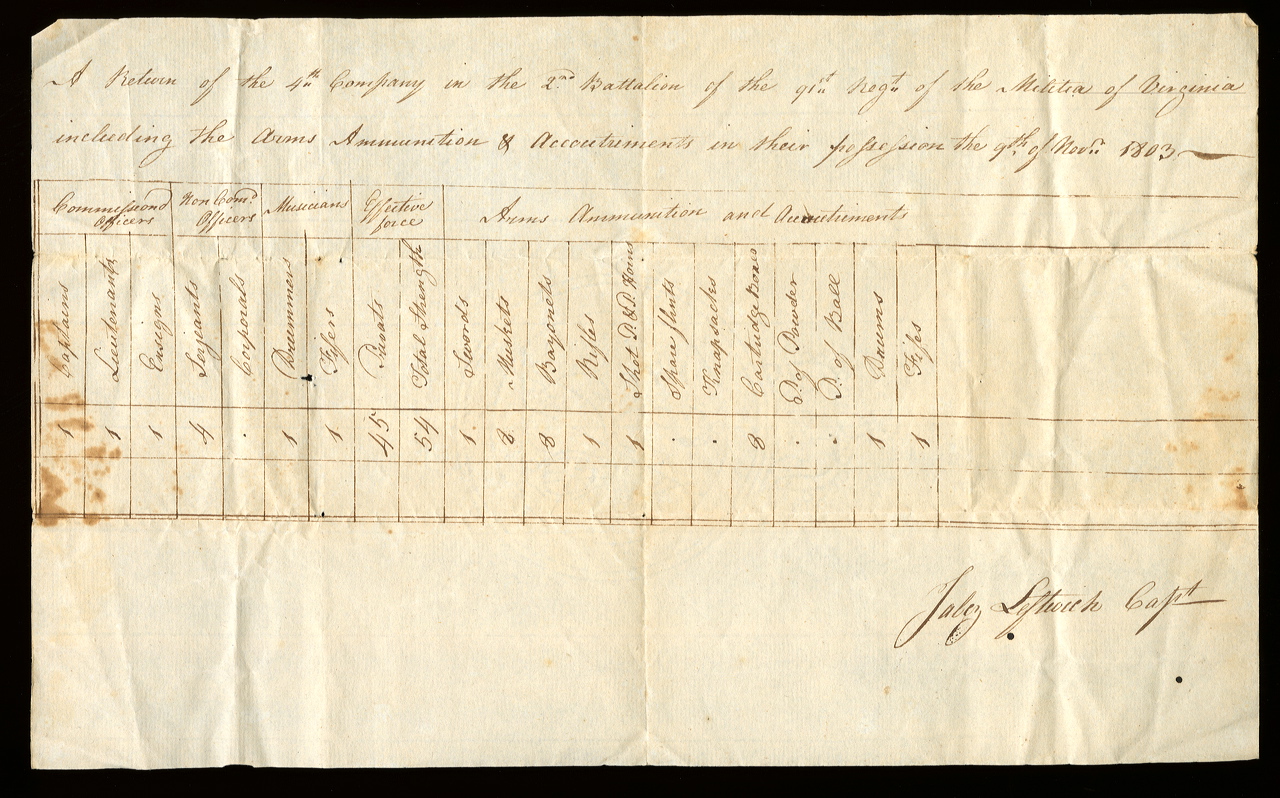 A Return of the 4th Company in the 2nd Battalion of the 91st Regt of the Militia of Virginia
including the Arms Ammunition & Accoutrements in their possession the 9th of Novr 1803
Commissiond Officers Non Comd Officers Musicians Effective force Arms Ammunition and Accoutriments
Captains Lieutenants Ensigns Serjeants Corporals Drummers Fifers Privats Total Strength Swords Muskets Bayonets Rifles Shot P. & P. Horns Spare flints Knapsacks Cartridge Boxes P. of Powder P. of Ball Drums Fifes
1 1 1 4 . 1 1 45 54 1 8 8 1 1 . . 8 . . 1 1
Jabez Leftwich Capt